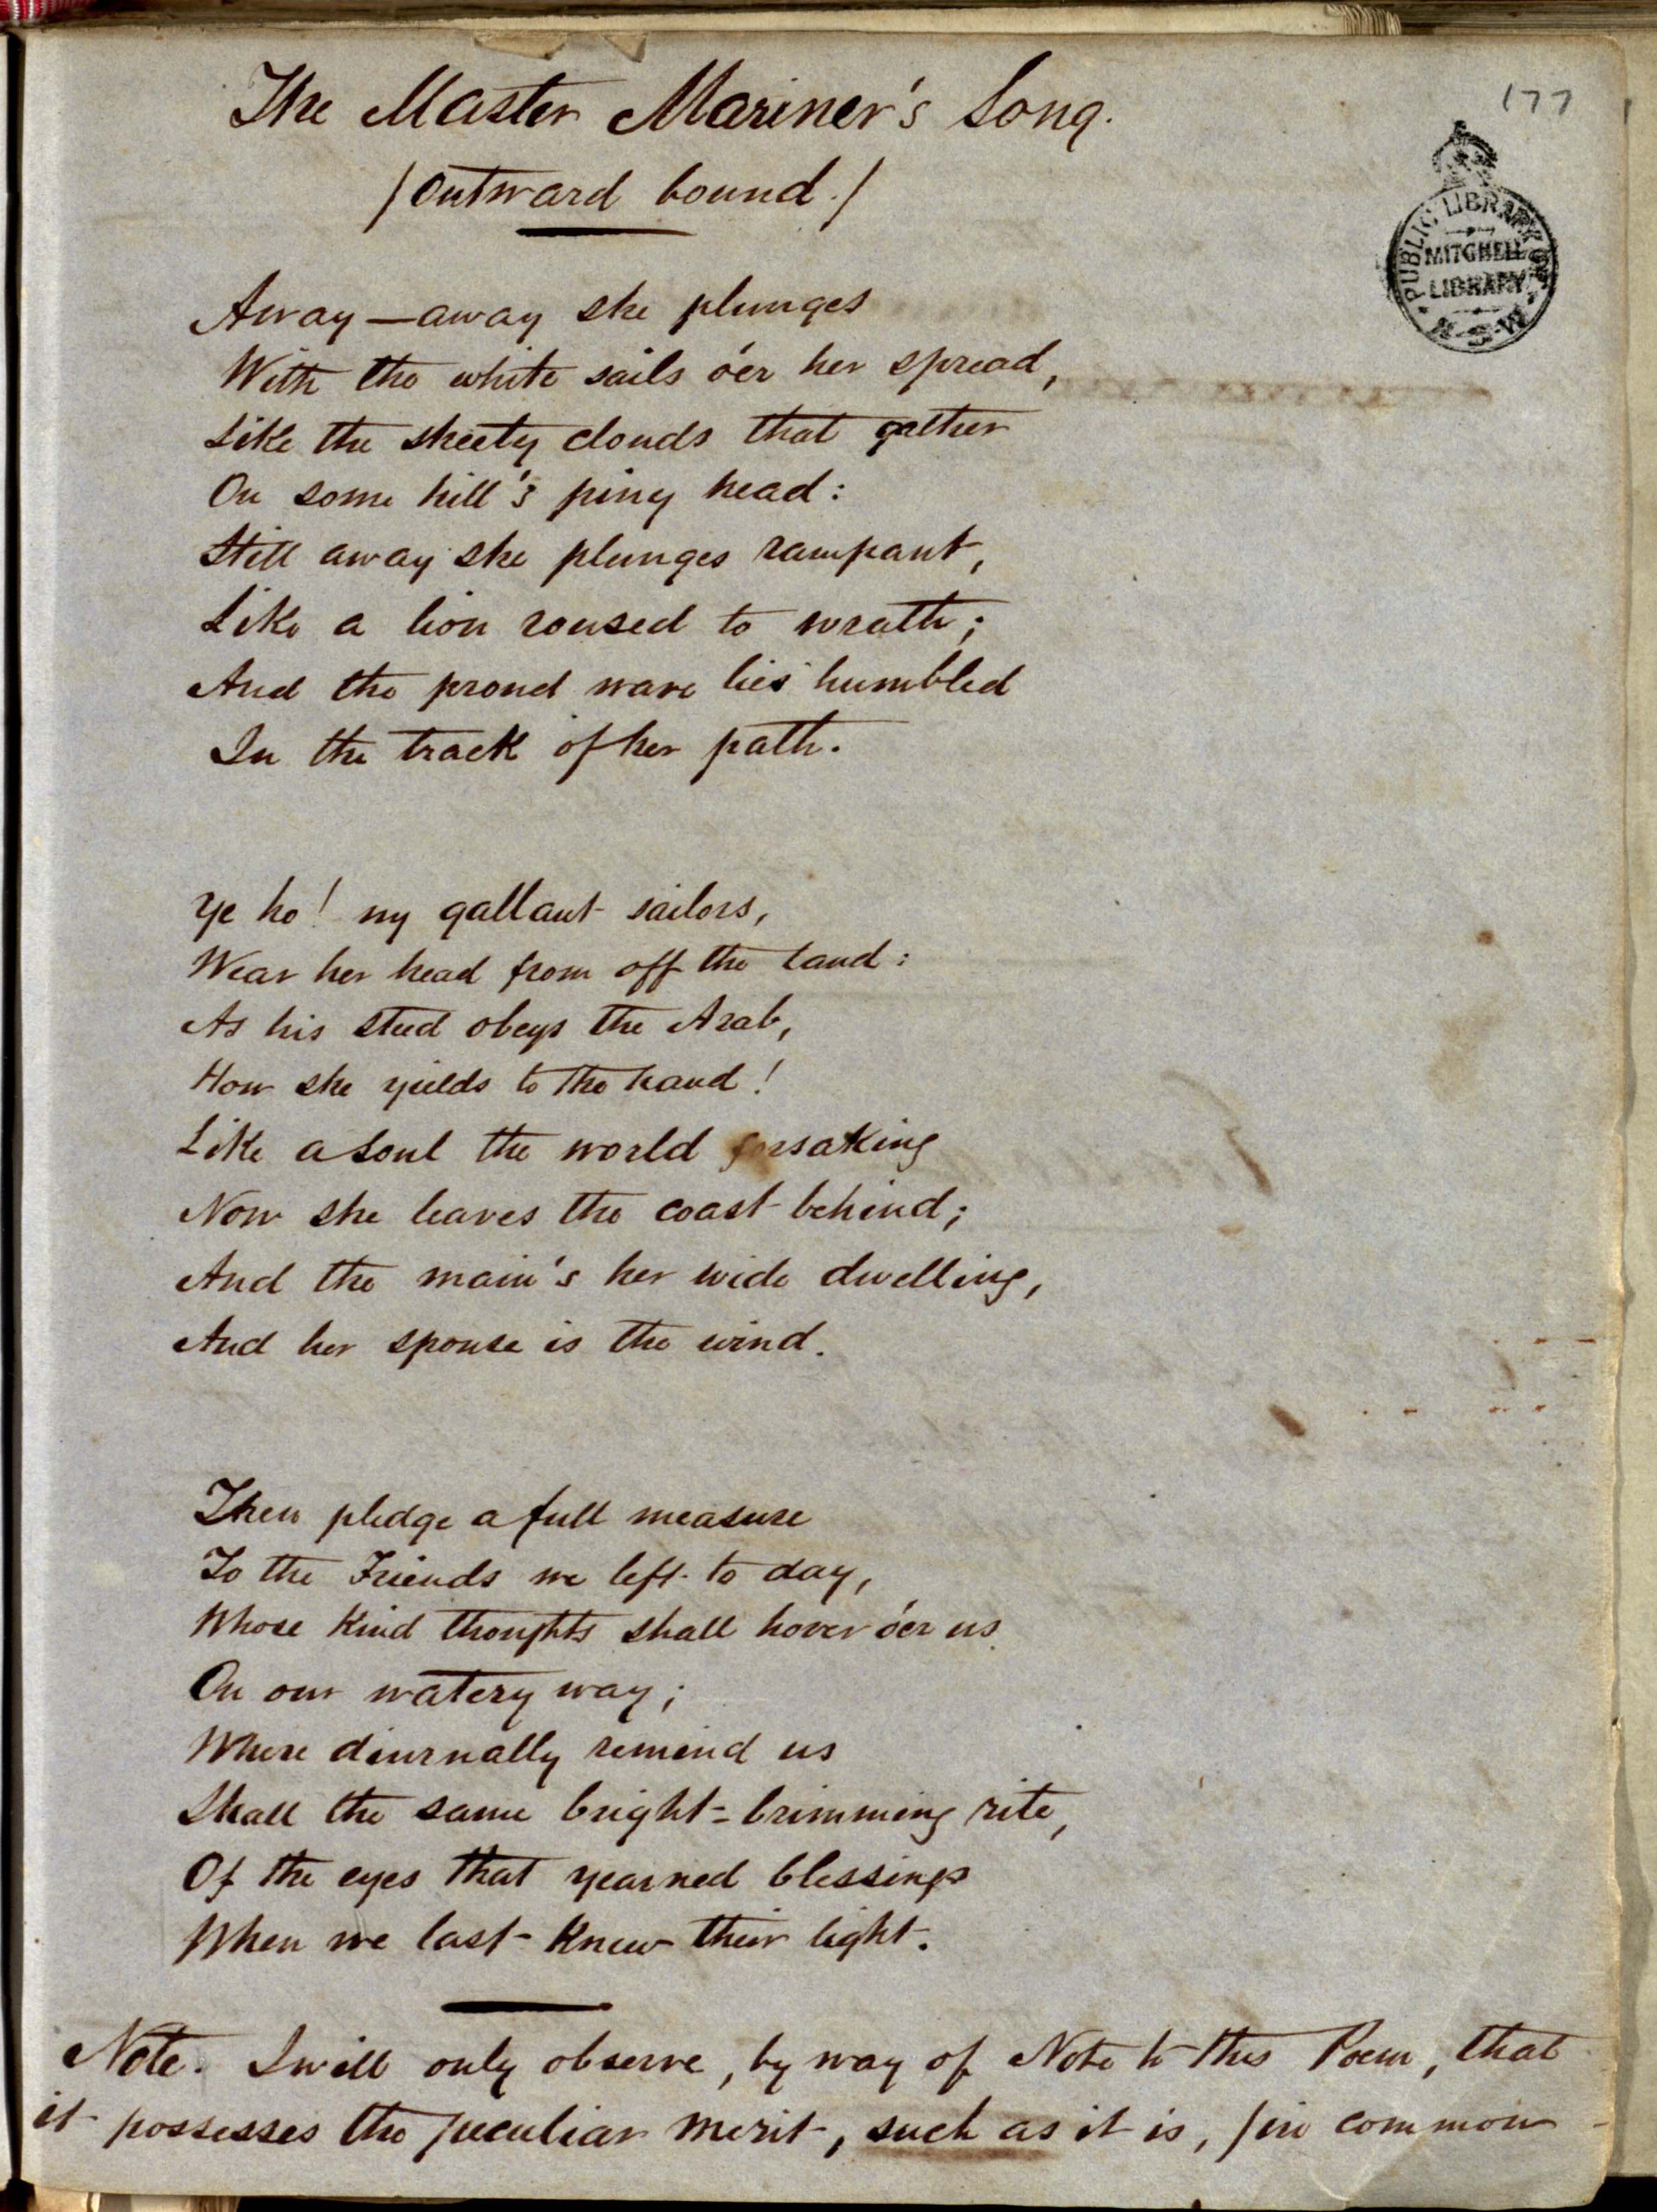 The Master Mariner's Song.
177
/Outward bound./
PUBLIC LIBRARY OF
MITCHELL
LIBRARY
N.S.W.
Away—away she plunges
With the white sails o'er her spread,
Like the sheety clouds that gather
On some hill's piny head:
Still away she plunges rampant,
Like a lion roused to wrath;
And the proud wave lies humbled
In the track of her path.
Ye ho! my gallant sailors,
Wear her head from off the land:
As his steed obeys the Arab,
How she yields to the hand!
Like a soul the world forsaking
Now she leaves the coast behind;
And the main's her wide dwelling,
And her spouse is the wind.
Then pledge a full measure
To the Friends we left to day,
Whose kind thoughts shall hover o'er us
On our watery way;
Where diurnally remind us
Shall the same bright-brimming rite,
Of the eyes that yearned blessings
When we last knew their light.
Note. I will only observe, by way of Note to this Poem, that
it possesses the peculiar merit, such as it is, /in common